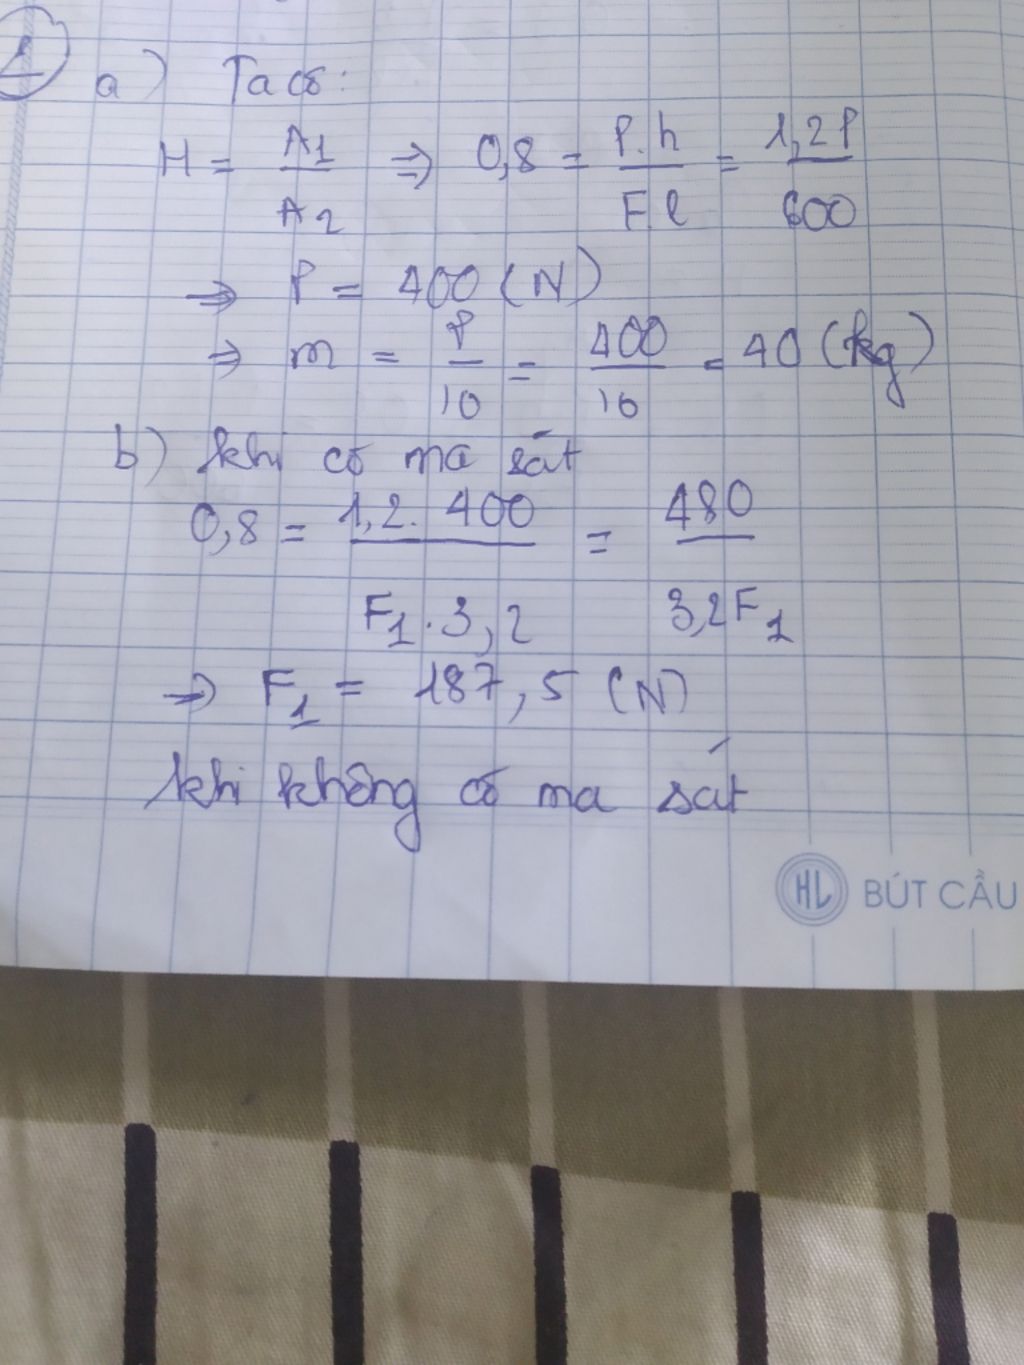 a) Ta có:
H = A1/A2 ⇒ 0,8 = P.h/F.l = 1,2P/600
⇒ P = 400 (N)
⇒ m = P/10 = 400/10 = 40 (kg)
b) khi có ma sát
0,8 = 1,2. 400/F1.3,2 = 480/3,2F1
⇒ F1 = 187,5 (N)
khi không có ma sát
HL BÚT CẦU